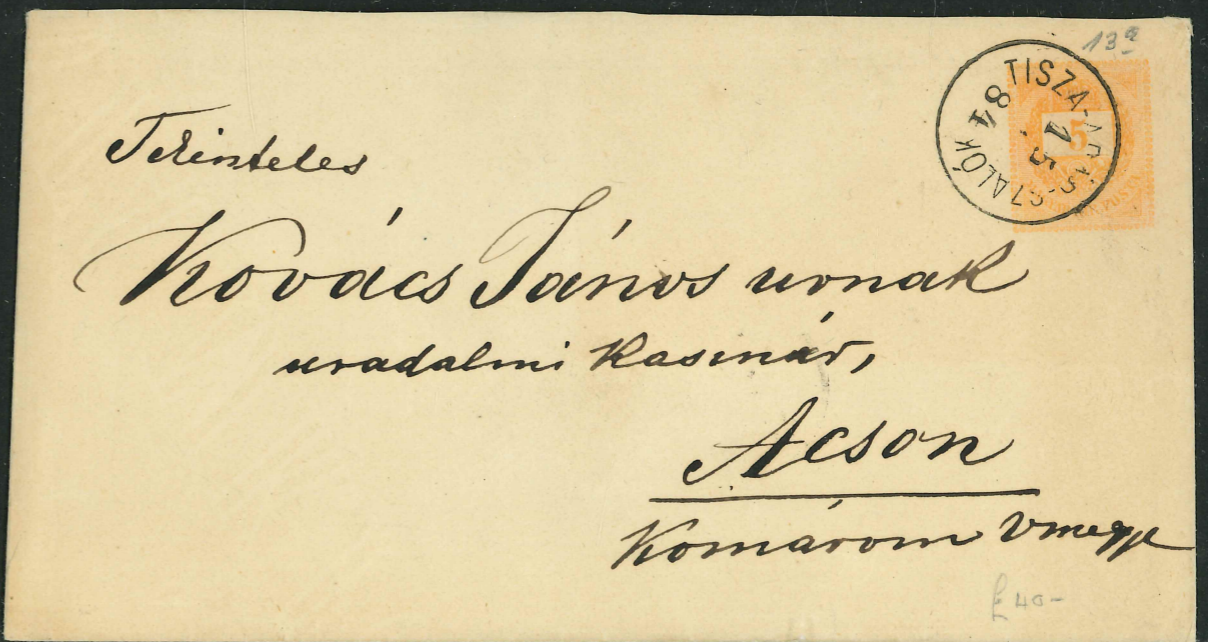 13a
TISZA-ABÁD-SZALÓK
84
1 5
5
POSTA
Tekinteles
Kovács János urnak
uradalmi Kasznár,
Acson
Komárom Vmegye
£ 40-